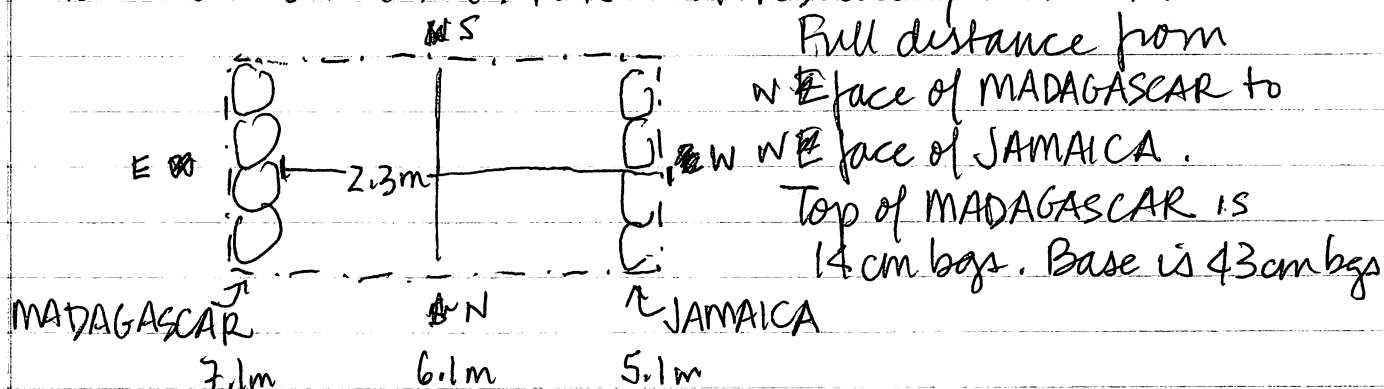 S
Full distance from
W face of MADAGASCAR to
E
2.3m
W
W face of JAMAICA.
Top of MADAGASCAR is
14 cm bgs. Base is 43 cm bgs
MADAGASCAR
N
JAMAICA
7.1m
6.1m
5.1m